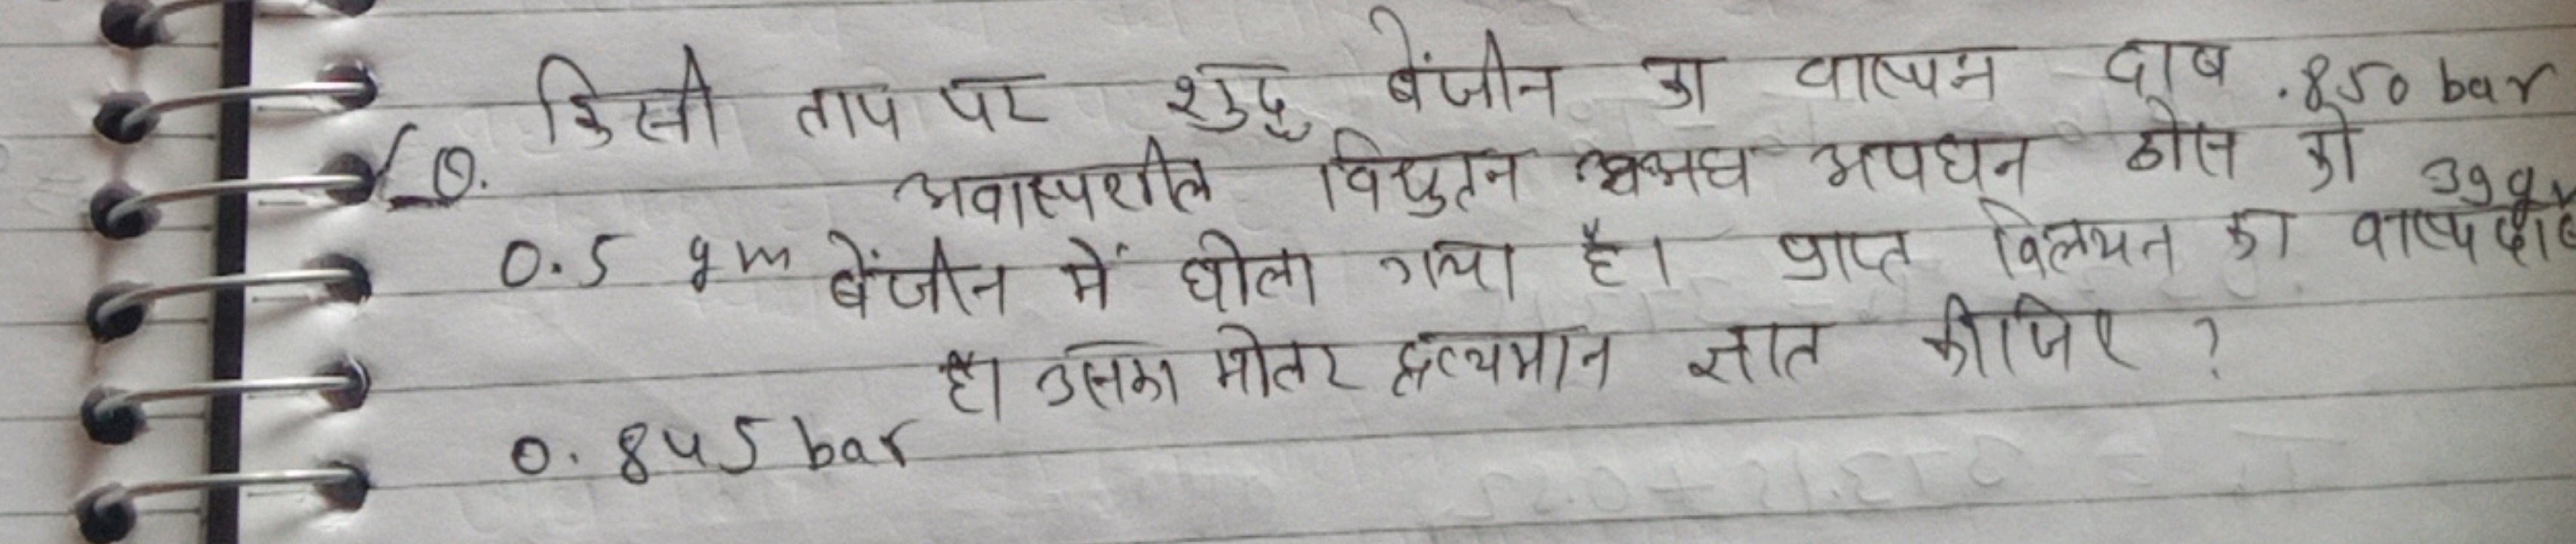 किसी ताप पर शुद्ध बेंजीन का वाष्पन दाब .850 bar
Q. अवास्पशील विधुतन अपघन ठोस को 39 gm
0.5 gm बेंजीन में घोला गया है। प्राप्त विलयन का वाष्प दाब
है। उसका मोलर द्रव्यमान ज्ञात कीजिए ?
0.845 bar